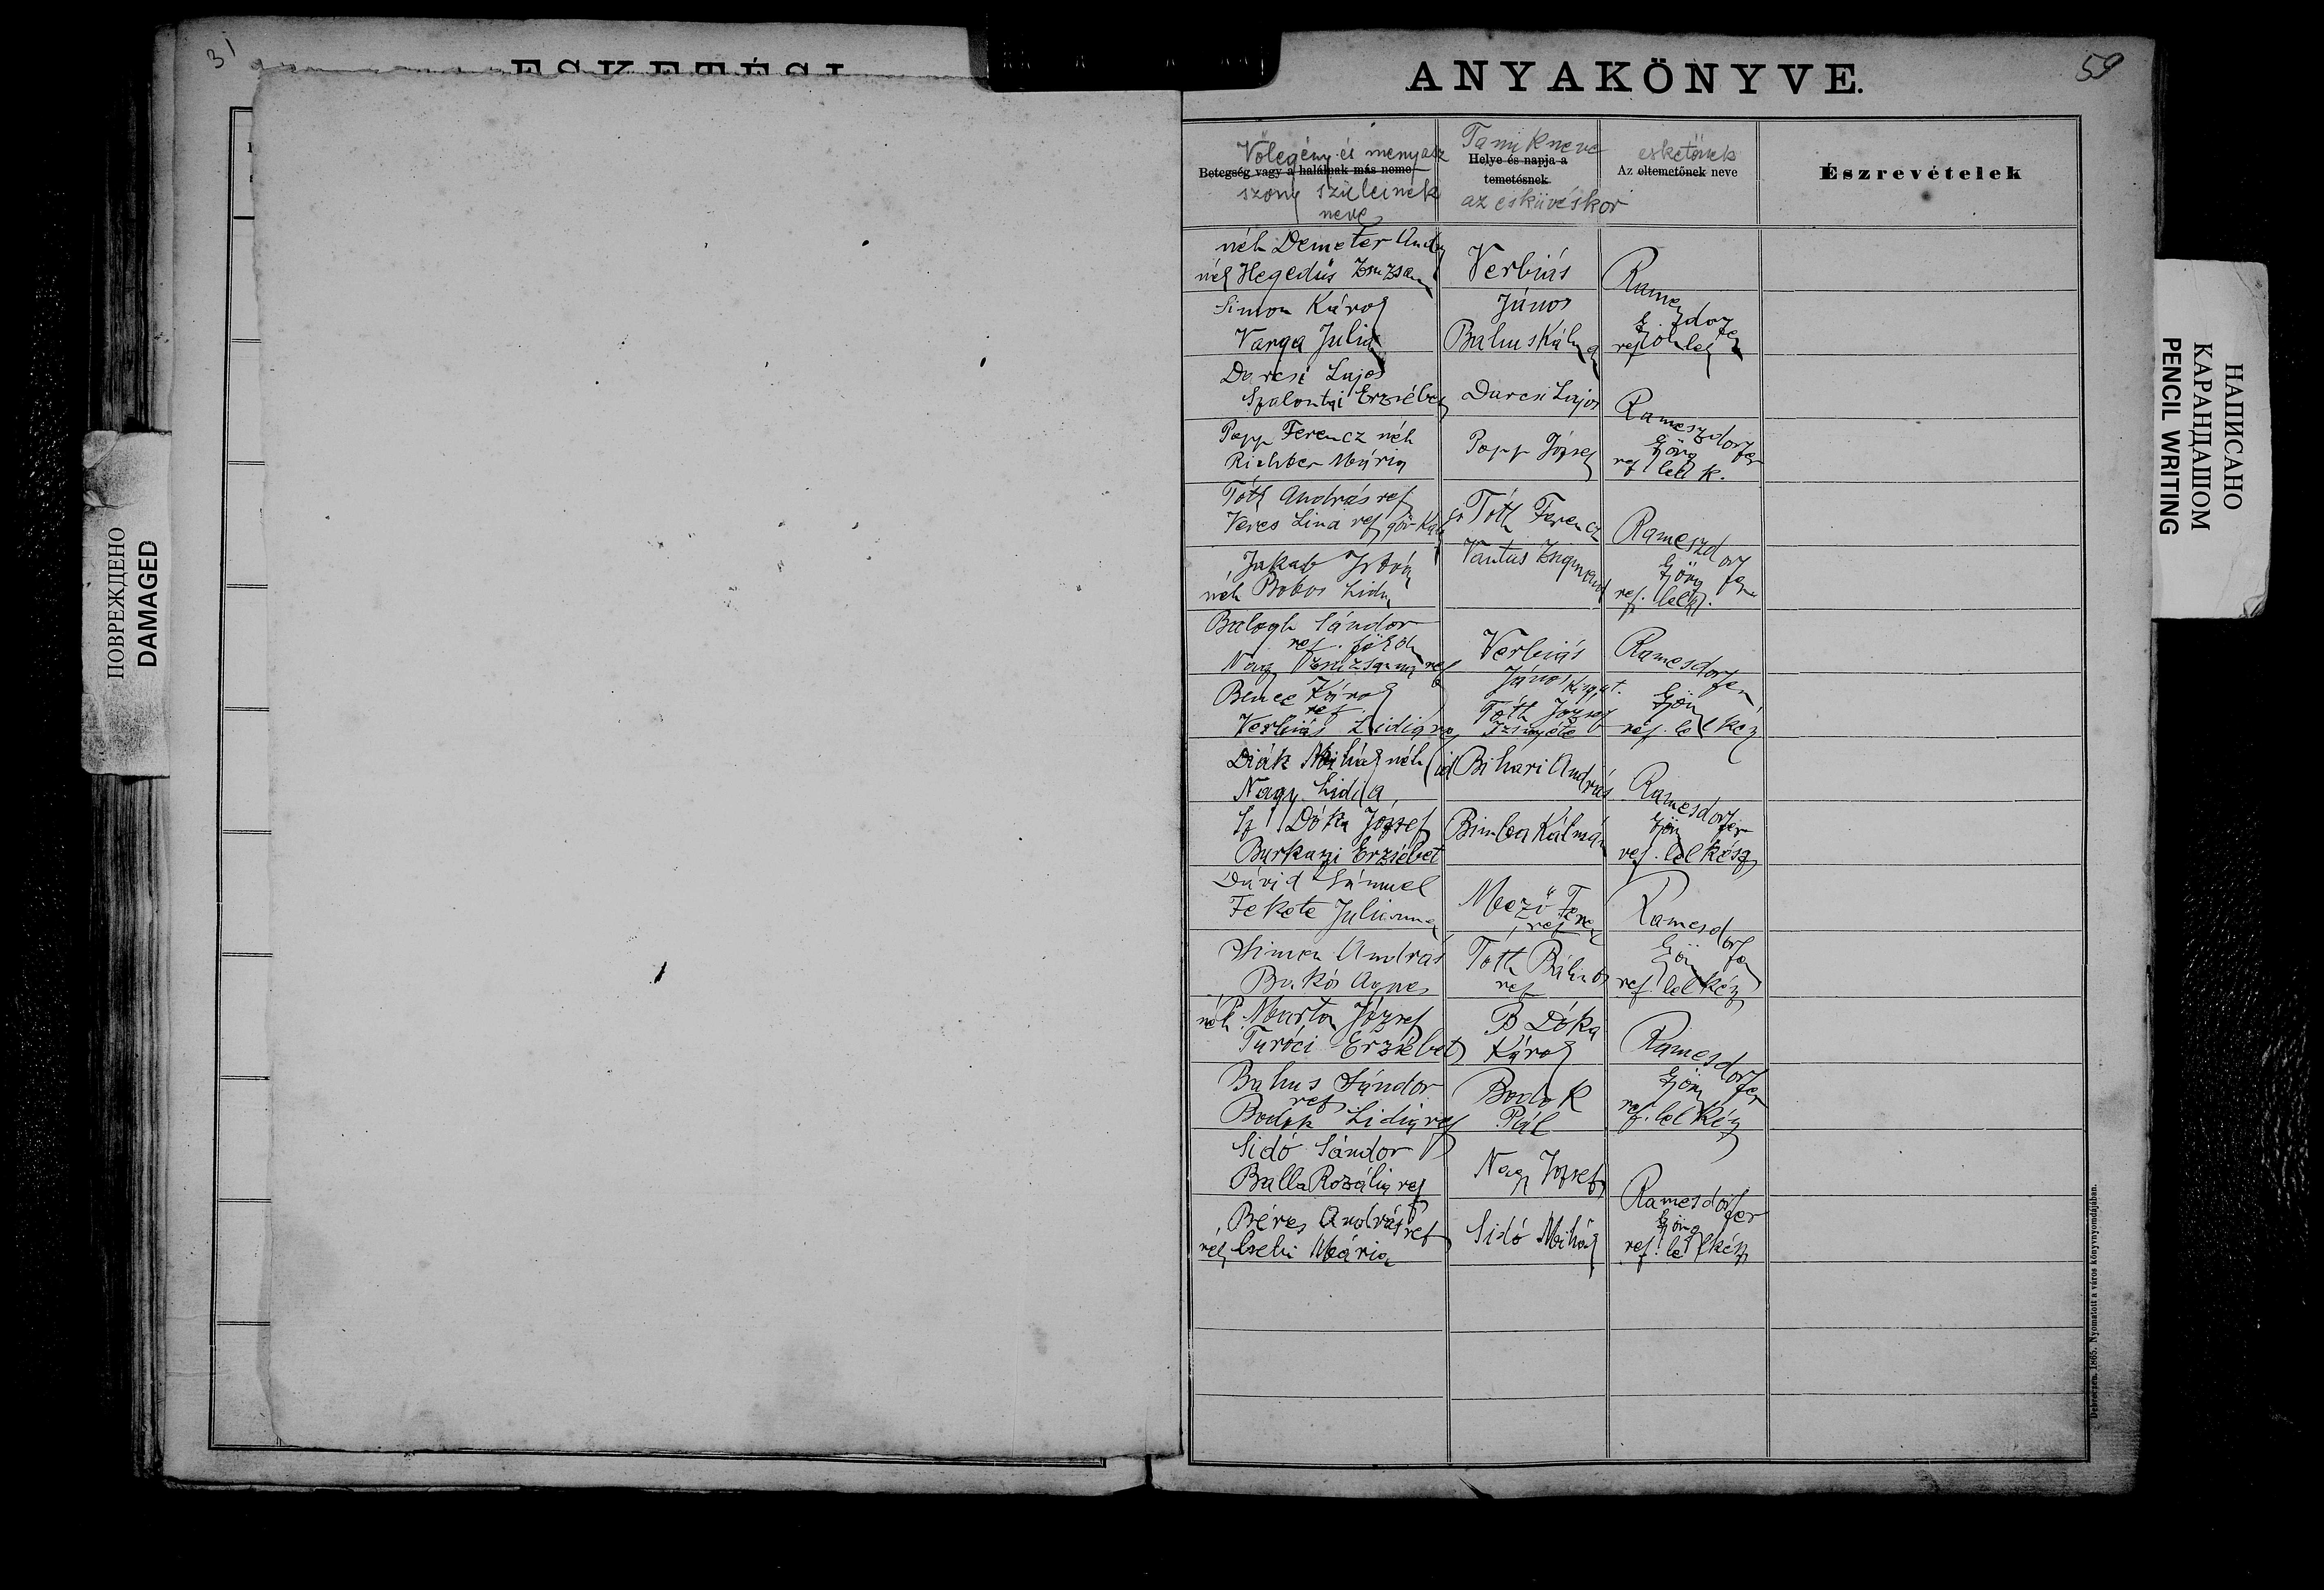 31
ESKETÉSI
ANYAKÖNYVE.
59
Vőlegény és menyasz
Betegség vagy a halálnak más neme
szony szüleinek
neve
Tanuk neve
Helye és napja a
temetésnek
az esküvéskor
esketőnek
Az eltemetőnek neve
Észrevételek
néh Demeter
néh Hegedüs
Verbiás
Simon Károly
János
Varga Julia
Balus Kálmán
Darcsi Lajos
Szalontai Erzsébet
Darcsi Lajos
Papp Ferencz néh
Richter Mária
Papp József
Rameszdorfer
György
ref lelk.
Tóth András ref
Veres Lina ref gör-kath
Tóth Ferencz
Rameszdorfer
Jakab István
Vantus Zsigmond
György
néh Bobos Lidia
ref. lelk.
Balogh Sándor
ref.
Nagy Zsuzsanna ref
Verbiás
Ramesdorfer
János
Bence Károly
ref
Tóth József
György
Verbiás Lidia
ref. lelkész
Diák Mihály néh
id Bihari András
Nagy Lidia
Ramesdorfer
Dóka József
Bimba Kálmán
György
Burkazi Erzsébet
ref. lelkész
Dávid Sámuel
Fekete Julianna
Mező
ref
Ramesdorfer
Simon András
Tóth Bálint
György
Bakó Agnes
ref
ref. lelkész
néh Marton József
B Dóka
Turóci Erzsébet
Károly
Ramesdorfer
Balus Sándor
ref
Bodok
György
Bodok Lidia ref
Pál
ref. lelkész
Sidó Sándor
Balla Rozália ref
Nagy József
Ramesdorfer
Béres András ref
Sidó Mihály
György
néh Cseki Mária
ref. lelkész
Debreczen. 1865. Nyomatott a város könyvnyomdájában.
ПОВРЕЖДЕНО
DAMAGED
НАПИСАНО
КАРАНДАШОМ
PENCIL WRITING